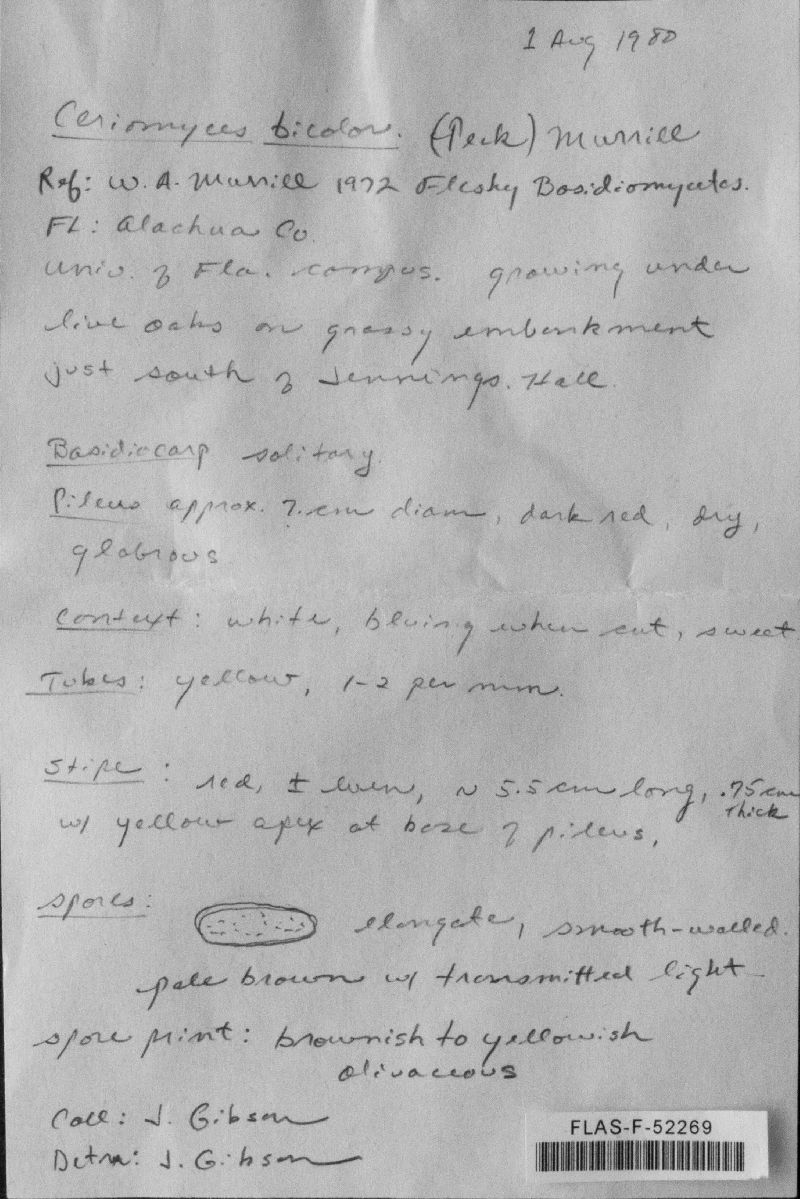 1 Aug 1980
Ceriomyces bicolor. (Peck) Murrill
Ref: W. A. Murrill 1972 Fleshy Basidiomycetes.
FL: Alachua Co.
Univ. of Fla. campus. growing under
live oaks on grassy embankment
just south of Jennings. Hall.
Basidiocarp solitary.
Pileus approx. 7 cm diam, dark red, dry,
glabrous
Context: white, bluing when cut, sweet
Tubes: yellow, 1-2 per mm.
Stipe: red, ± even, ~ 5.5 cm long, .75 cm
thick
w/ yellow apex at base of pileus,
Spores: elongate, smooth-walled.
pale brown w/ transmitted light
spore print: brownish to yellowish
olivaceous
Coll: J. Gibson
Detm: J. Gibson
FLAS-F-52269